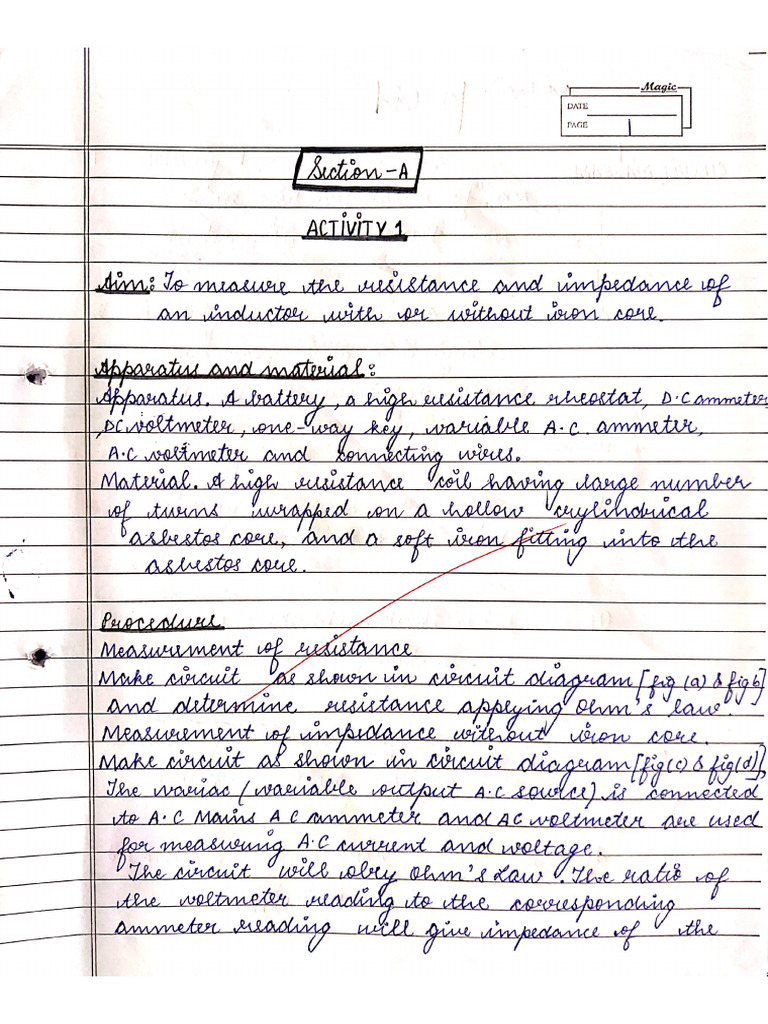 Magic
DATE
PAGE 1
Section-A
ACTIVITY 1
Aim: To measure the resistance and impedance of
an inductor with or without iron core.
Apparatus and material:
Apparatus. A battery, a high resistance rheostat, D.C ammeter
, DC voltmeter, one-way key, variable A.C. ammeter,
A.C voltmeter and connecting wires.
Material. A high resistance coil having large number
of turns wrapped on a hollow crylindrical
asbestos core, and a soft iron fitting into the
asbestos core.
Procedure
Measurement of resistance
Make circuit as shown in circuit diagram [fig (a) & fig b]
and determine resistance applying Ohm's law.
Measurement of impedance without iron core.
Make circuit as shown in circuit diagram [fig(c) & fig(d)],
The variac (variable output A.C source) is connected
to A.C Mains A C ammeter and AC voltmeter are used
for measuring A.C current and voltage.
The circuit will obry Ohm's Law. The ratio of
the voltmeter reading to the corresponding
ammeter reading will give impedance of the